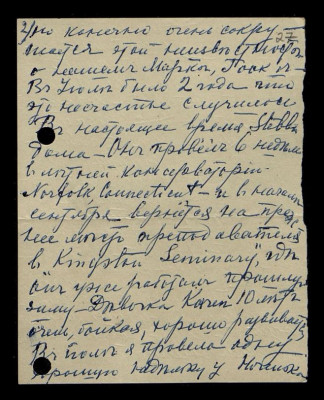 2/но конечно очень сокру
шается этой неизвестностью
о нашем Марке,
В Июле было 2 года что
это несчастье случилось
В настоящее время
дома – Он провел 6 недель
в летней консерватории
Norfolk, Connecticut – и в начале
сентября вернётся на преж
нее место преподавателя
в Kingston Seminary", где
он уже работал прошлую
зиму – Девочка Карен 10 лет
очень бойкая, хорошо развивается
В Июле я провела одну
хорошую недельку у
27